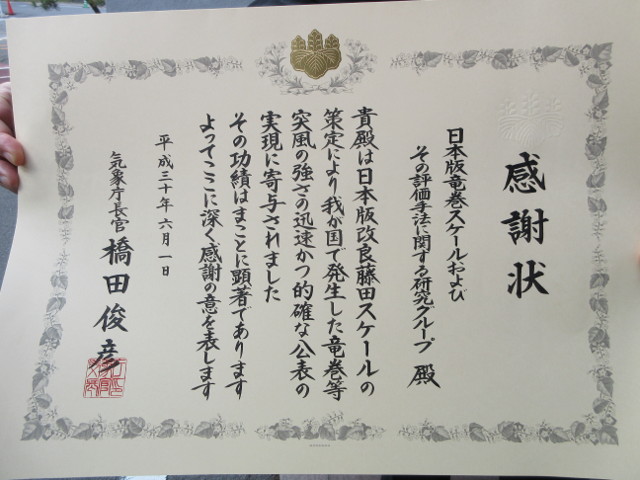 感謝状
日本版竜巻スケールおよび
その評価手法に関する研究グループ 殿
貴殿は日本版改良藤田スケールの
策定により我が国で発生した竜巻等
突風の強さの迅速かつ的確な公表の
実現に寄与されました
その功績はまことに顕著であります
よってここに深く感謝の意を表します
平成三十年六月一日
気象庁長官 橋田俊彦